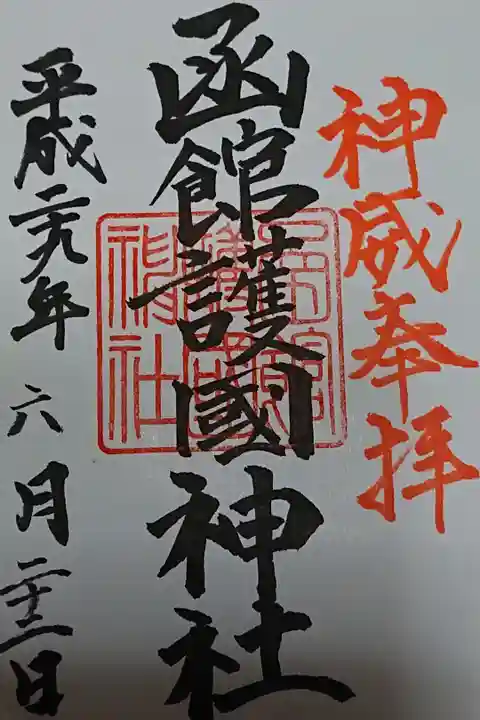 神威奉拝
函館護國神社
平成二十九年六月二十二日
函館
護國
神社